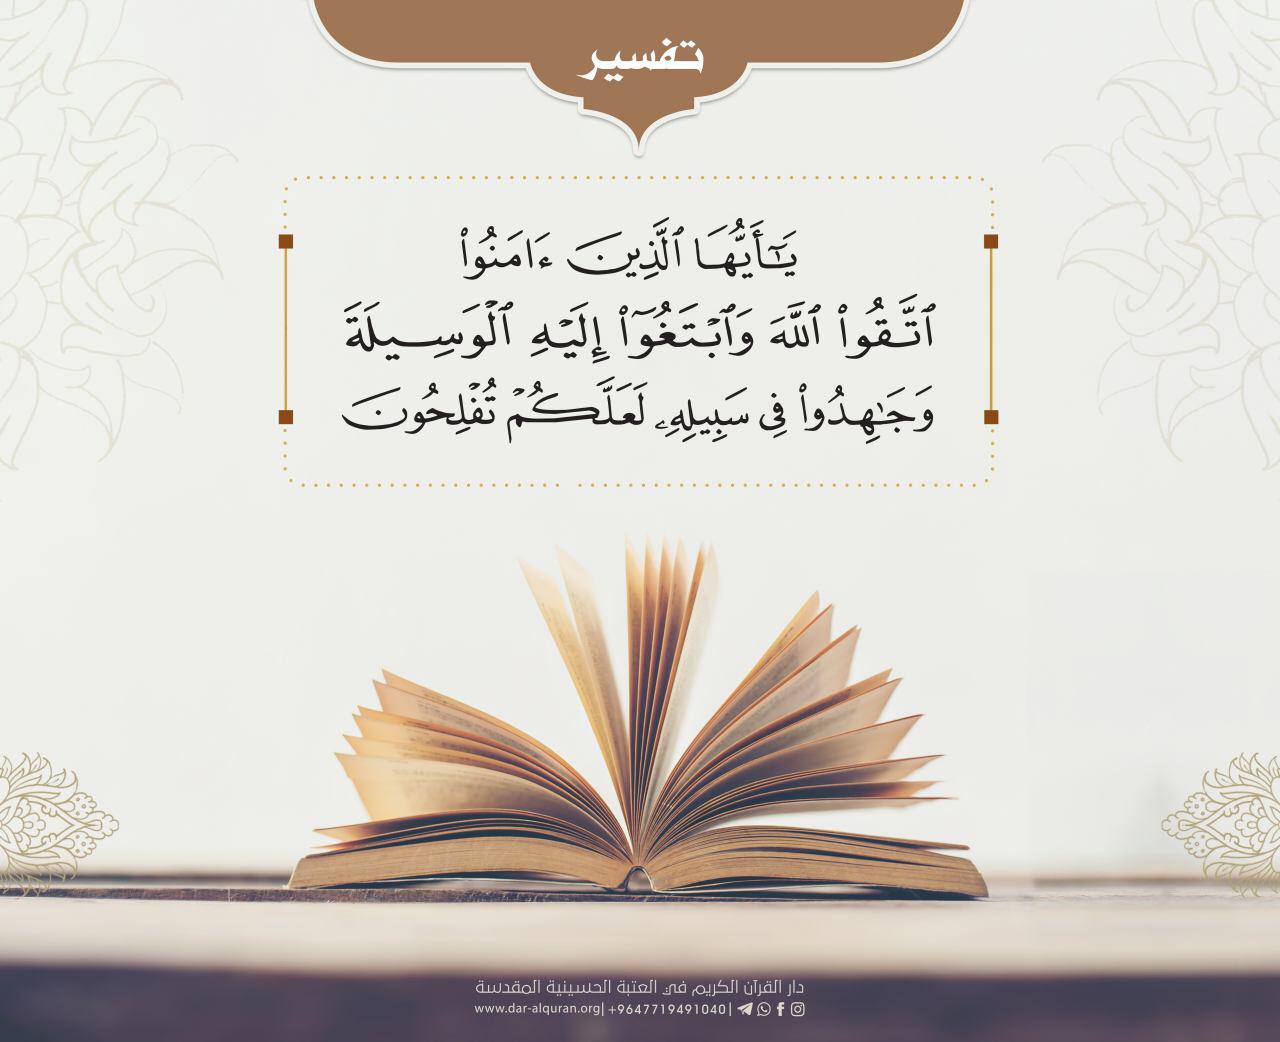 تفسير
يَٰٓأَيُّهَا ٱلَّذِينَ ءَامَنُوا۟
ٱتَّقُوا۟ ٱللَّهَ وَٱبْتَغُوٓا۟ إِلَيْهِ ٱلْوَسِيلَةَ
وَجَٰهِدُوا۟ فِى سَبِيلِهِۦ لَعَلَّكُمْ تُفْلِحُونَ
دار القرآن الكريم في العتبة الحسينية المقدسة
www.dar-alquran.org| +9647719491040|